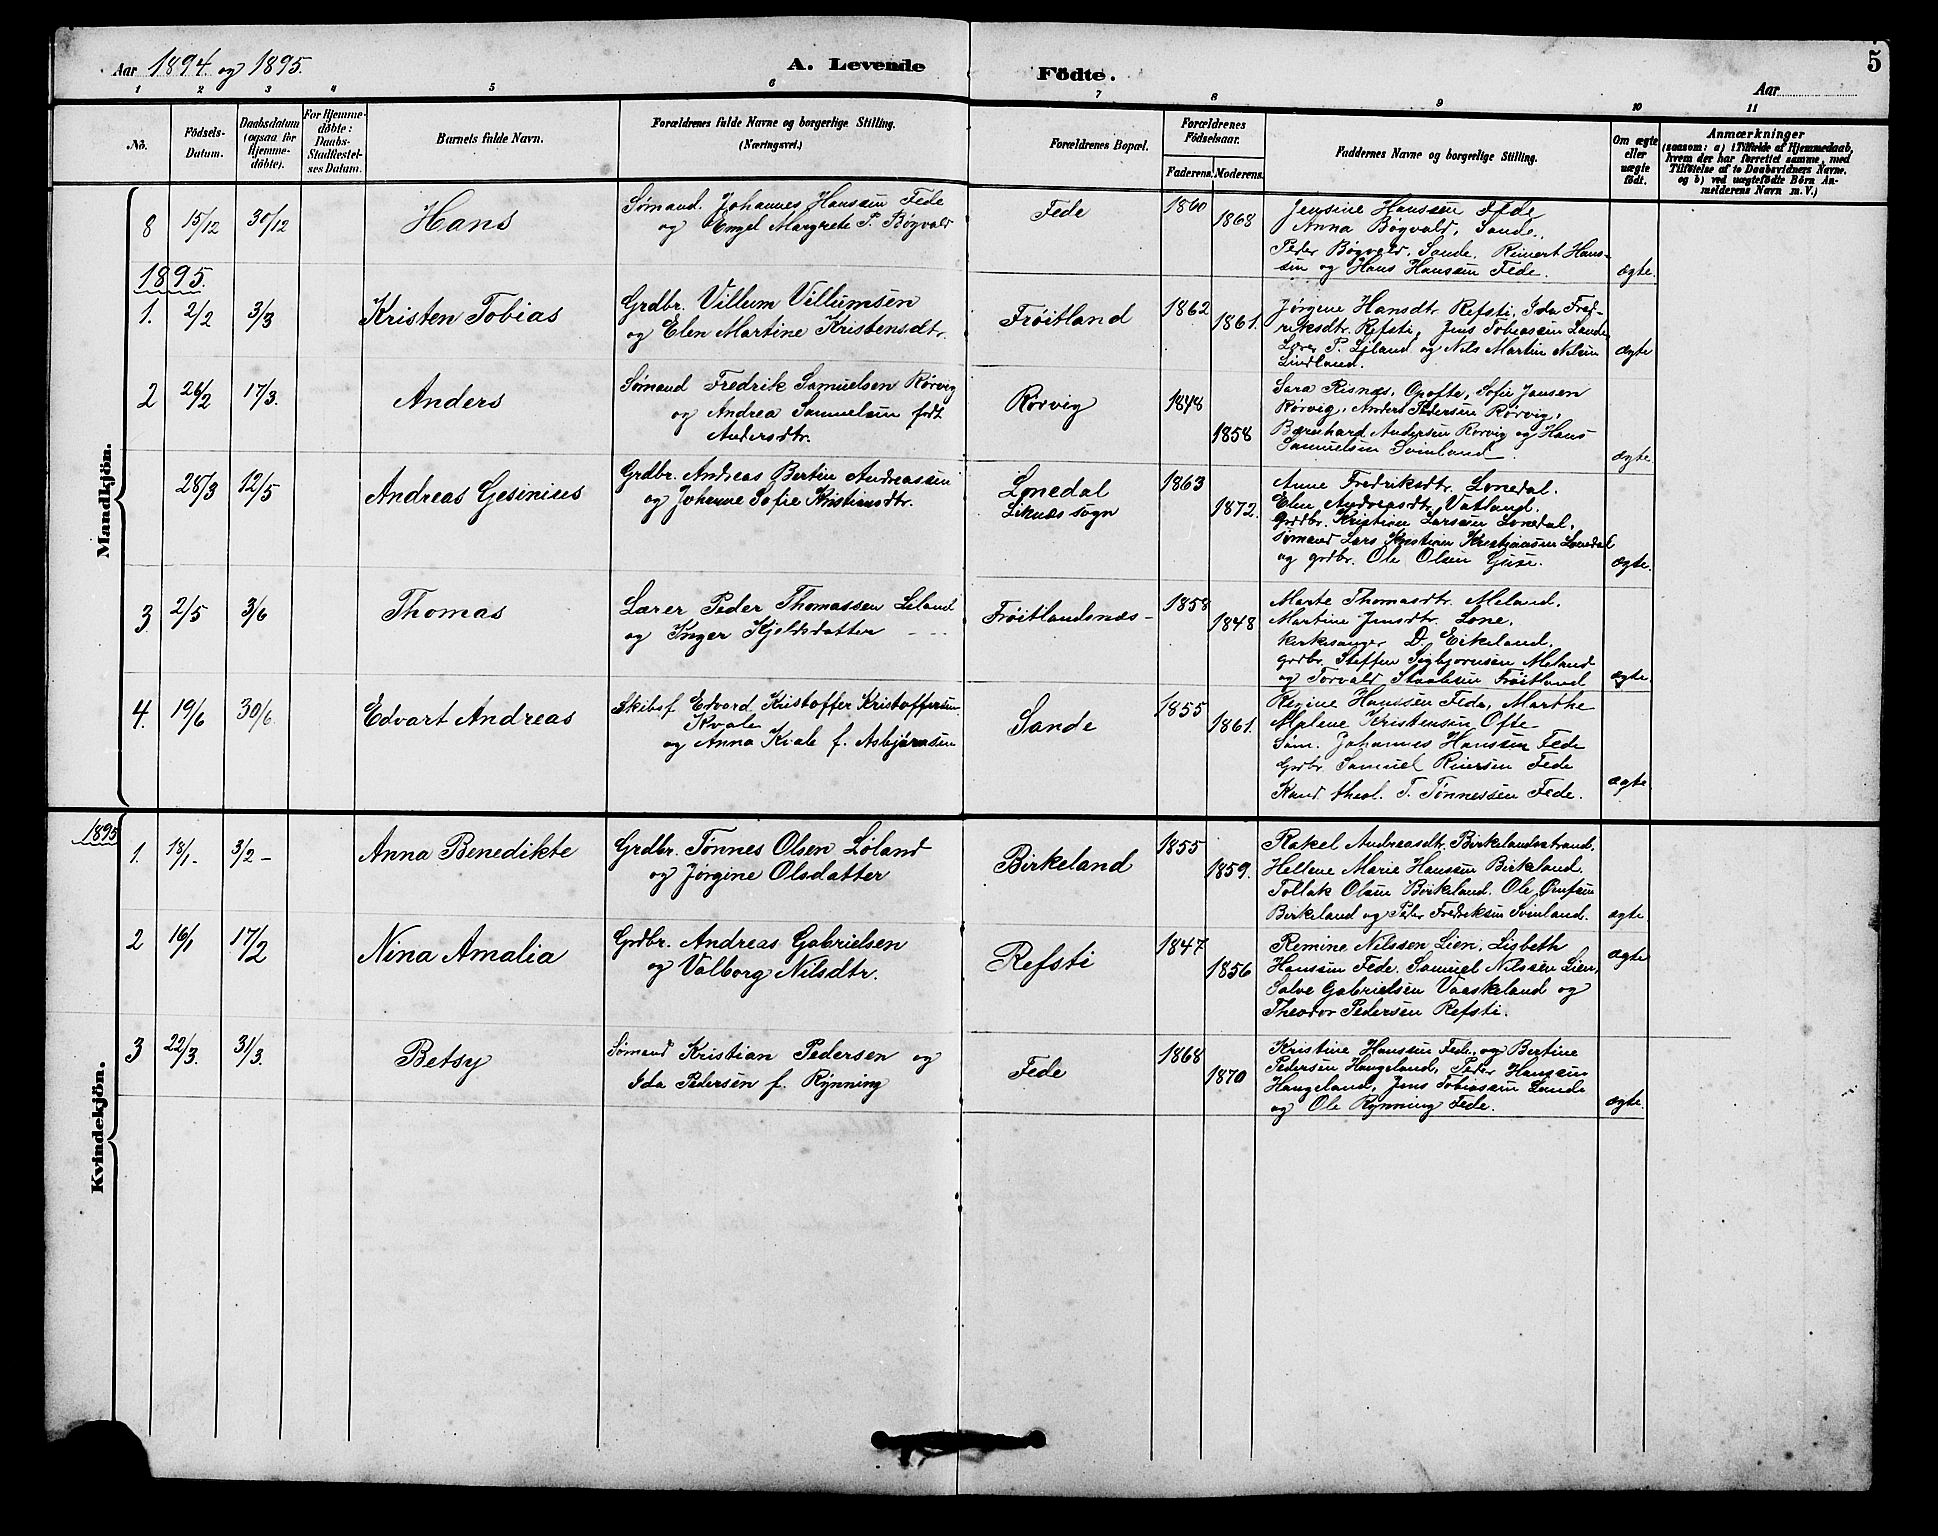 5
Aar 1894. og 1895.
A. Levende Födte.
Aar
1 2 3 4 5 6 7 8 9 10 11
No.
Födsels-
Datum.
Daabsdatum
(ogsaa for
Hjemme-
döbte).
For Hjemme-
döbte:
Daabs-
Stadfæstel-
ses Datum.
Barnets fulde Navn.
Forældrenes fulde Navne og borgerlige Stilling.
(Næringsvei.)
Forældrenes Bopæl.
Forældrenes
Födselsaar.
Faderens. Moderens.
Faddernes Navne og borgerlige Stilling.
Om ægte
eller
uægte
födt.
Anmærkninger
(saasom: a) i Tilfælde af Hjemmedaab,
hvem der har forrettet samme, med
Tilföielse af to Daabsvidners Navne,
og b) ved uægtefödte Börn An-
melderens Navn m. V.)
Mandkjön.
8 15/12 30/12 Hans
Sømand. Johannes Hanssen Fede
og Engel Margrete P. Bøgvald
Fede 1860 1868
Jensine Hanssen Fede
Anna Bøgvald, Sande.
Peder Bøgvald, Sande. Reinert Hans-
sen og Hans Hanssen Fede.
ægte.
1895.
1. 2/2 3/3 Kristen Tobias
Grdbr. Villum Villumsen
og Elen Martine Kristensdtr.
Frøitland 1862 1861.
Jørgine Hansdtr. Refsti, Ida Fred-
riksdtr. Refsti, Jens Tobiassen Sande
Lærer P. Liland og Nils Martin Nilsen
Lindland.
ægte
2 26/2 17/3. Anders
Sømand Fredrik Samuelsen Rørvig
og Andrea Samuelsen født
Andersdtr.
Rørvig 1848 1858
Sara Risnæs, Opofte, Sofie Jansen
Rørvig, Anders Pedersen Rørvig,
Bærnhard Andersen Rørvig og Hans
Samuelsen Svinland.
ægte
28/3 12/5 Andreas Gesinius
Grdbr. Andreas Bertin Andreassen
og Johanne Sofie Kristiansdtr.
Lønedal
Liknæs sogn
1863 1872.
Anne Fredriksdtr. Lønedal.
Elen Andreasdtr. Vatland.
Grdbr. Kristian Larssen Lønedal,
sømand Lars Kristian Kristiansen Lønedal
og grdbr. Ole Olsen Guse.
ægte.
3. 2/5 3/6 Thomas
Lærer Peder Thomassen Liland
og Inger Kjeldsdatter
Frøitlandsnæs- 1858 1848
Marte Thomasdtr. Meland.
Martine Jensdtr. Lone.
kirkesanger D. Eikeland.
grdbr. Steffen Sigbjørnsen Meland
og Torvald Frøitland
ægte.
4. 19/6 30/6 Edvart Andreas
Skibsf. Edvard Kristoffer Kristoffersen
Kvale
og Anna Kvale f. Asbjørnsen
Sande 1855 1861.
Regine Hanssen Feda, Marthe
Malene Kristensen Ofte
Søm. Johannes Hanssen Fede
Grdbr. Samuel Reiersen Fede
Kand. theol. T. Tønnessen Fede.
ægte
Kvindekjön.
1895
1. 18/1- 3/2- Anna Benedikte
Grdbr. Tønnes Olsen Løland
og Jørgine Olsdatter
Birkeland 1855 1859.
Rakel Andreasdtr. Birkelandsstrand.
Hellene Marie Hanssen Birkeland.
Tollak Olsen Birkeland. Ole
Birkeland og Peder Fredriksen Svinland.
ægte
2 16/1 17/2 Nina Amalia
Grdbr. Andreas Gabrielsen
og Valborg Nilsdtr.
Refsti 1847 1856
Remine Nilssen Lien. Lisbeth
Hanssen Fede. Samuel Nilssen Lien,
Salve Gabrielsen Vaaskeland og
Theodor Pedersen Refsti.
ægte
3 22/3. 31/3. Betsy
Sømand Kristian Pedersen og
Ida Pedersen f. Rynning
Fede 1868 1870
Kristine Hanssen Fede, og Bertine
Pedersen Haugeland, Peder Hanssen
Haugeland, Jens Tobiassen Sande
og Ole Rynning Fede.
ægte.